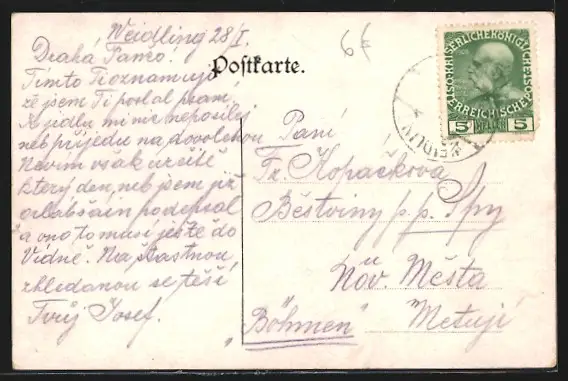 Weidling 28/I.
6€
Drahá Fanco!
Postkarte.
Tímto Ti oznamuji
že jsem Ti poslal psaní,
A jídlu mi nic neposílej
neb přijedu na dovolenou
Nevím však určitě
který den, neb jsem již
podepsal
a ono to musí ještě do
Vídně. Na šťastnou
shledanou se těší
Tvůj Josef.
KAISERLICHE KÖNIGLICHE ÖSTERREICHISCHE POST
5 HELLER 5
WEIDLING
Paní
Fr. Kopáčková
Běstviny p. p. Spy
u
Nov. Města
„Böhmen" Metují